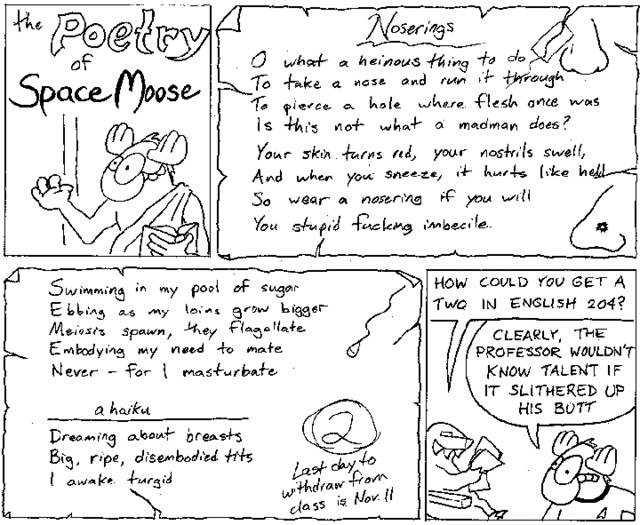 the Poetry
of
Space Moose
Noserings
O what a heinous thing to do
To take a nose and run it through
To pierce a hole where flesh once was
Is this not what a madman does?
Your skin turns red, your nostrils swell,
And when you sneeze, it hurts like hell
So wear a nosering if you will
You stupid fucking imbecile.
Swimming in my pool of sugar
Ebbing as my loins grow bigger
Meiosis spawn, they flagellate
Embodying my need to mate
Never - for I masturbate
a haiku
Dreaming about breasts
Big, ripe, disembodied tits
I awake turgid
2
Last day to
withdraw from
class is Nov. 11
HOW COULD YOU GET A
TWO IN ENGLISH 204?
CLEARLY, THE
PROFESSOR WOULDN'T
KNOW TALENT IF
IT SLITHERED UP
HIS BUTT